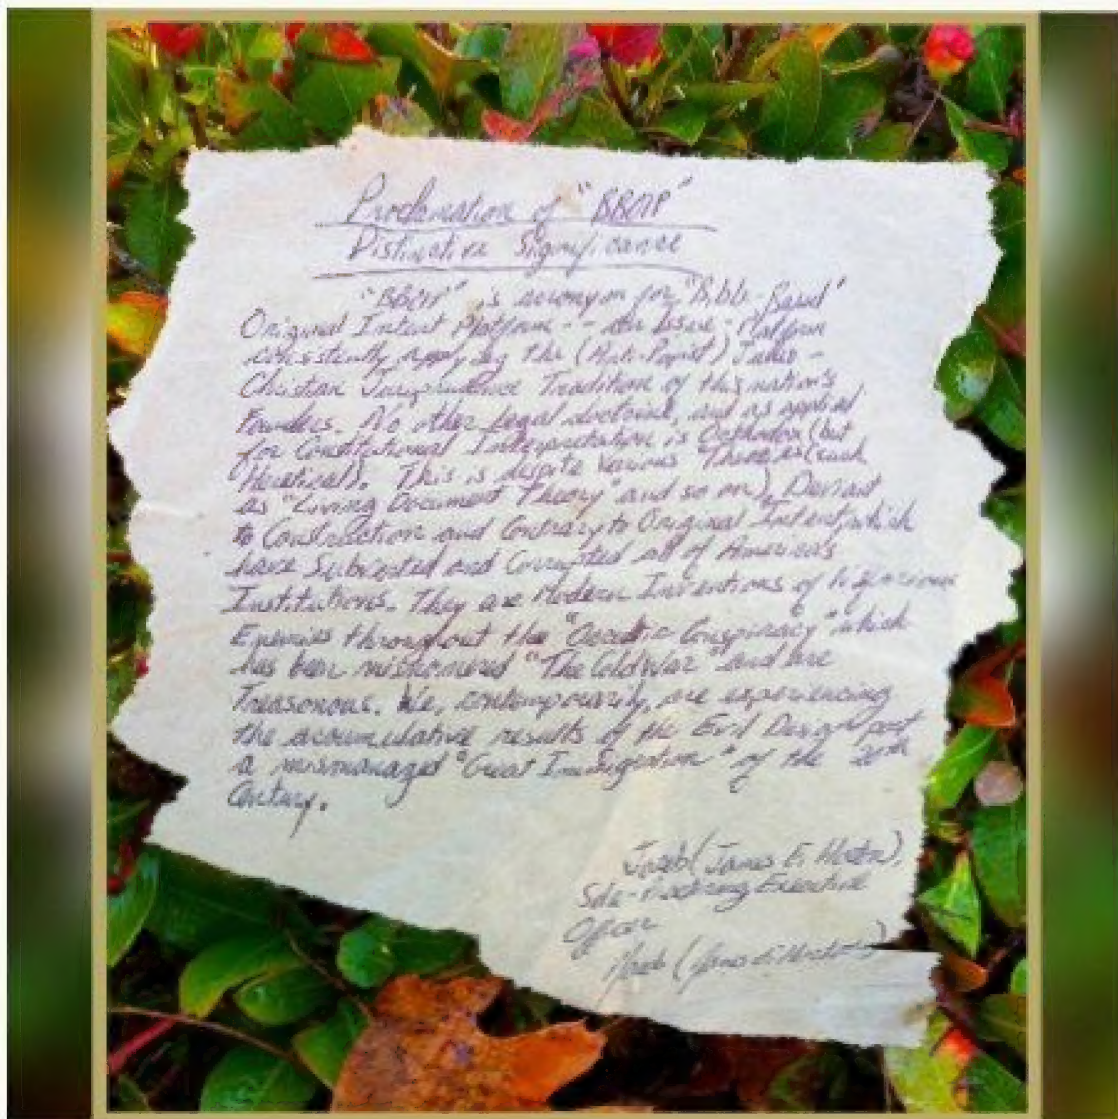 Proclamation of "BBOIP"
Distinctive Significance
"BBOIP" is acronym for "Bible-Based"
Original Intent Platform -- An Issue-Platform
consistently applying the (Anti-Papist) Judeo-
Christian Jurisprudence Tradition of this nation's
Founders. No other legal doctrine, and as applied
for Constitutional Interpretation is Orthodox (but
Heretical). This is despite various Theories (such
as "Living Document Theory" and so on), Deviant
to Construction and Contrary to Original Intent, which
have Subverted and Corrupted all of America's
Institutions. They are Modern Inventions of Nefarious
Enemies throughout the Conspiracy" which
has been misnomered "The Cold War" and are
Treasonous. We, contemporarily, are experiencing
the accumulative results of the Evil Design
a mismanaged "Great" of the 20th
Century.
(James F.
Executive
Officer
(James